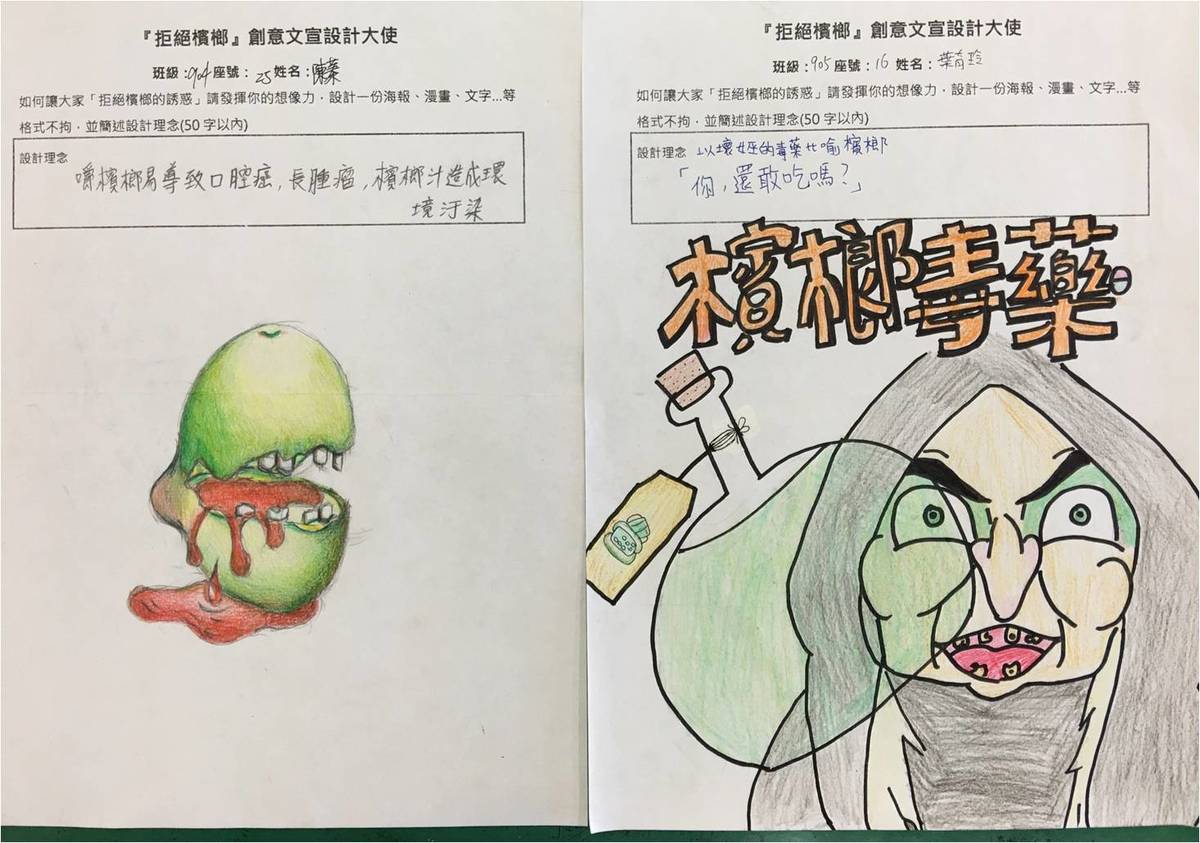 『拒絕檳榔』創意文宣設計大使
班級：904 座號：25 姓名：
如何讓大家「拒絕檳榔的誘惑」請發揮你的想像力，設計一份海報、漫畫、文字...等
格式不拘，並簡述設計理念(50 字以內)
設計理念
嚼檳榔易導致口腔癌，長腫瘤，檳榔汁造成環
境汙染
『拒絕檳榔』創意文宣設計大使
班級：905 座號：16 姓名：葉育玲
如何讓大家「拒絕檳榔的誘惑」請發揮你的想像力，設計一份海報、漫畫、文字...等
格式不拘，並簡述設計理念(50 字以內)
設計理念 以壞女巫的毒藥比喻檳榔
「你，還敢吃嗎？」
檳榔毒藥